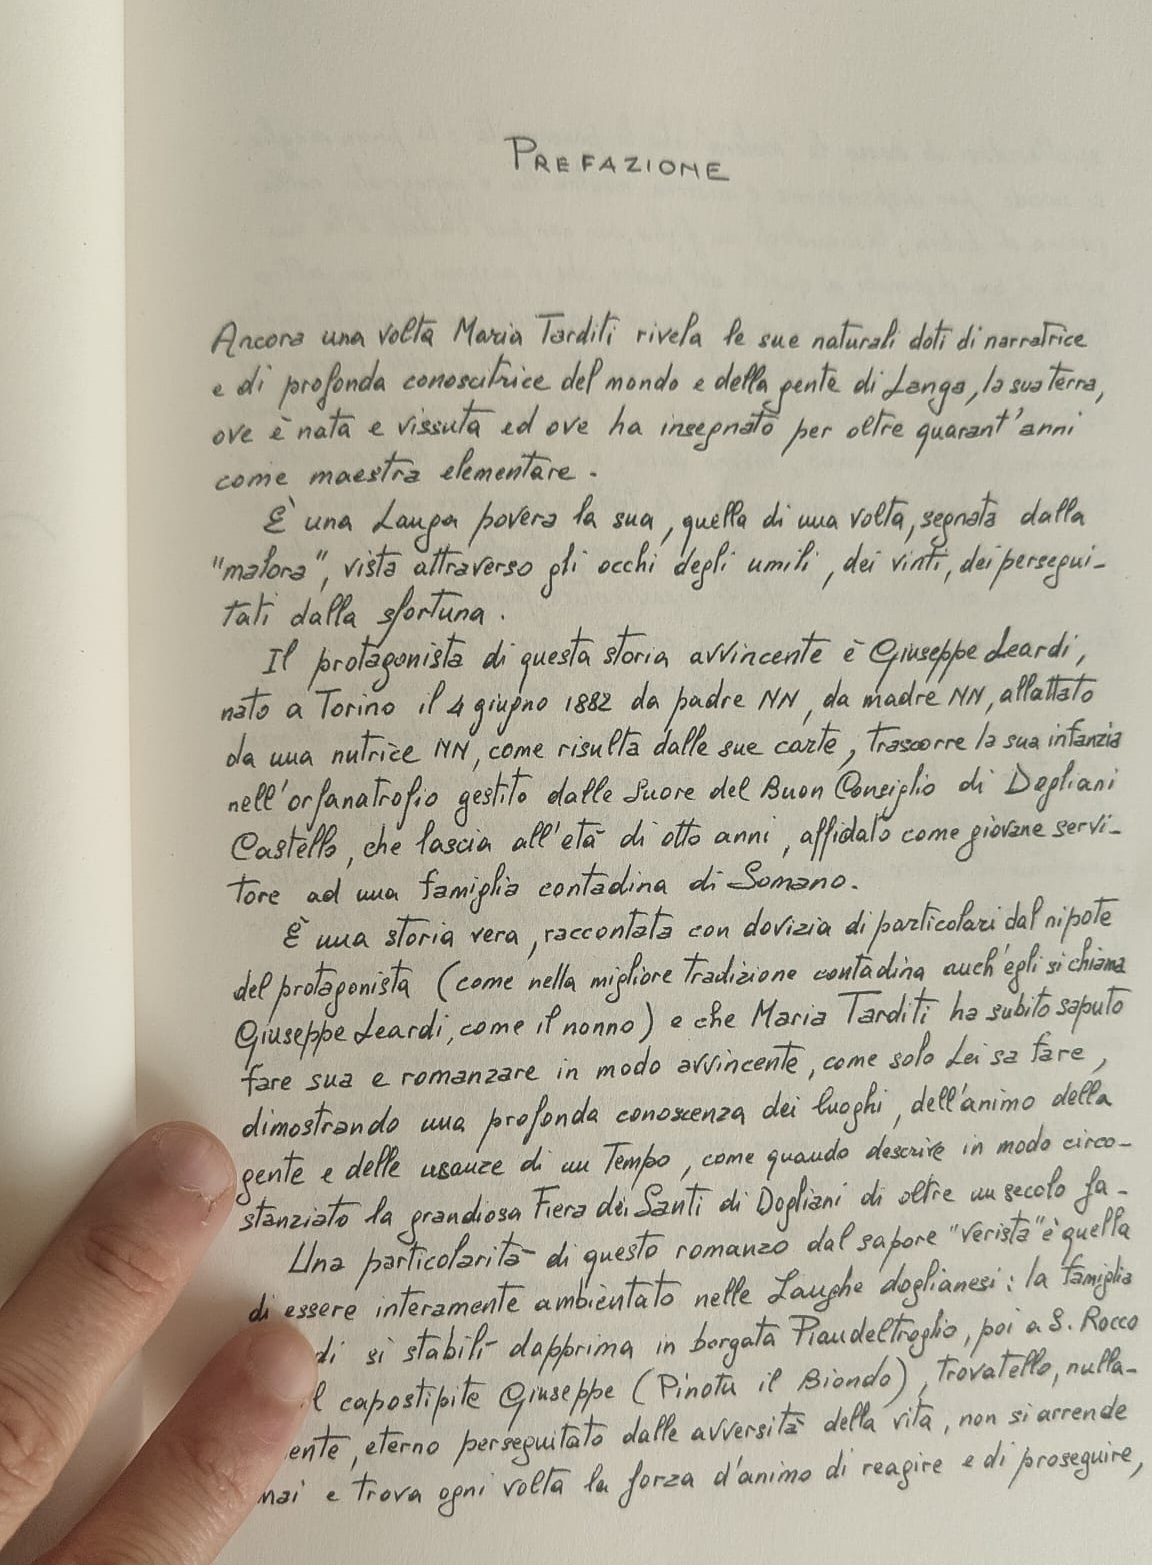 PREFAZIONE
Ancora una volta Maria Tarditi rivela le sue naturali doti di narratrice
e di profonda conoscitrice del mondo e della gente di Langa, la sua terra,
ove è nata e vissuta ed ove ha insegnato per oltre quarant'anni
come maestra elementare.
È una Langa povera la sua, quella di una volta, segnata dalla
"malora", vista attraverso gli occhi degli umili, dei vinti, dei persegui-
tati dalla sfortuna.
Il protagonista di questa storia avvincente è Giuseppe Leardi,
nato a Torino il 4 giugno 1882 da padre NN, da madre NN, allattato
da una nutrice NN, come risulta dalle sue carte, trascorre la sua infanzia
nell'orfanatrofio gestito dalle Suore del Buon Consiglio di Dogliani
Castello, che lascia all'età di otto anni, affidato come giovane servi-
tore ad una famiglia contadina di Somano.
È una storia vera, raccontata con dovizia di particolari dal nipote
del protagonista (come nella migliore tradizione contadina anch'egli si chiama
Giuseppe Leardi, come il nonno) e che Maria Tarditi ha subito saputo
fare sua e romanzare in modo avvincente, come solo Lei sa fare,
dimostrando una profonda conoscenza dei luoghi, dell'animo della
gente e delle usanze di un Tempo, come quando descrive in modo circo-
stanziato la grandiosa Fiera dei Santi di Dogliani di oltre un secolo fa.
Una particolarità di questo romanzo dal sapore "verista" è quella
di essere interamente ambientato nelle Langhe doglianesi: la famiglia
di si stabilì dapprima in borgata Piandeltroglio, poi a S. Rocco
il capostipite Giuseppe (Pinotu il Biondo), trovatello, nulla-
ente, eterno perseguitato dalle avversità della vita, non si arrende
mai e trova ogni volta la forza d'animo di reagire e di proseguire,